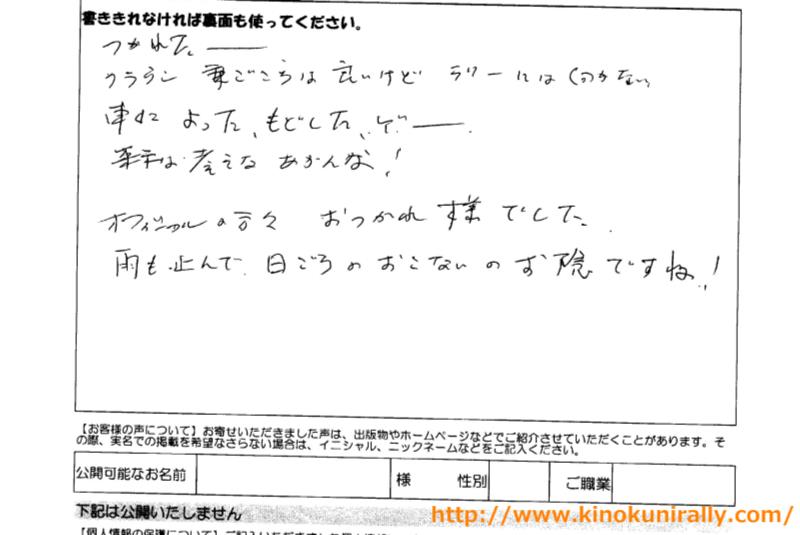 書ききれなければ裏面も使ってください。
つかれた ー
クラウン 乗ごこちは 良いけど ラリーには 向かない
車に よった、もどした、ゾー
車は 考えな あかんな!
オフィシャルの方々 おつかれ 様でした.
雨も止んで、日ごろのおこないのお陰ですね!
【お客様の声について】お寄せいただきました声は、出版物やホームページなどでご紹介させていただくことがあります。そ
の際、実名での掲載を希望なさらない場合は、イニシャル、ニックネームなどをご記入ください。
公開可能なお名前 様 性別 ご職業
下記は公開いたしません
http://www.kinokunirally.com/